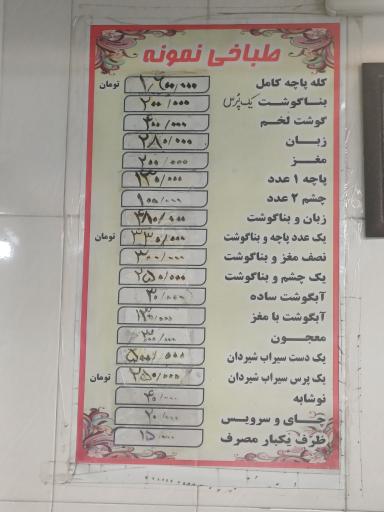 طباخی نمونه
کله پاچه کامل ۱/۶۰۰/۰۰۰ تومان
بناگوشت یک پرس ۲۰۰/۰۰۰
گوشت لخم ۴۰۰/۰۰۰
زبان ۲۸۰/۰۰۰
مغز ۲۰۰/۰۰۰
پاچه ۱ عدد ۱۳۰/۰۰۰
چشم ۲ عدد ۱۰۰/۰۰۰
زبان و بناگوشت ۴۸۰/۰۰۰
یک عدد پاچه و بناگوشت ۳۳۰/۰۰۰ تومان
نصف مغز و بناگوشت ۳۰۰/۰۰۰
یک چشم و بناگوشت ۲۵۰/۰۰۰
آبگوشت ساده ۳۰/۰۰۰
آبگوشت با مغز ۱۳۰/۰۰۰
معجون
یک دست سیراب شیردان ۵۰۰/۰۰۰
یک پرس سیراب شیردان ۲۵۰/۰۰۰ تومان
نوشابه ۴۰/۰۰۰
چای و سرویس ۲۰/۰۰۰
ظرف یکبار مصرف ۱۵/۰۰۰